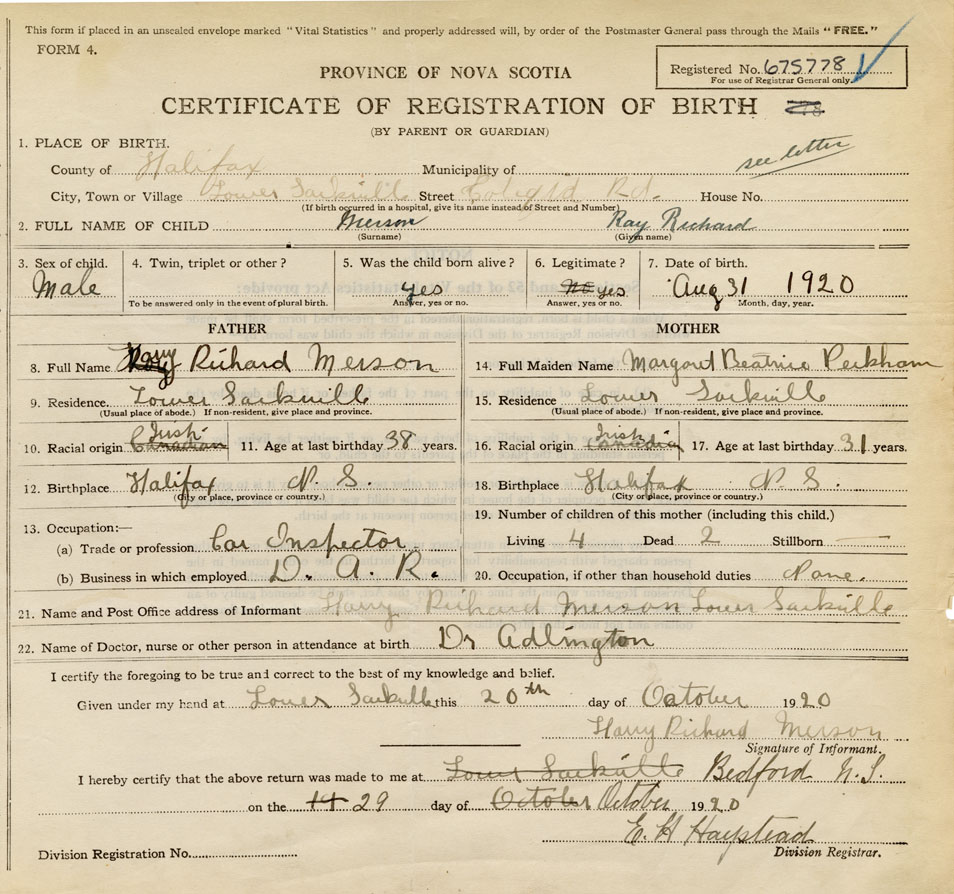 This form if placed in an unsealed envelope marked "Vital Statistics" and properly addressed will, by order of the Postmaster General pass through the Mails "FREE."
FORM 4.
Registered No. 675778
For use of Registrar General only.
PROVINCE OF NOVA SCOTIA
CERTIFICATE OF REGISTRATION OF BIRTH
(BY PARENT OR GUARDIAN)
see letter
1. PLACE OF BIRTH.
County of Halifax Municipality of
City, Town or Village Lower Sackville Street Rd. House No.
(If birth occurred in a hospital, give its name instead of Street and Number)
2. FULL NAME OF CHILD Merson Ray Richard
(Surname) (Given name)
3. Sex of child. 4. Twin, triplet or other? 5. Was the child born alive? 6. Legitimate? 7. Date of birth.
Male yes no yes Aug 31 1920
To be answered only in the event of plural birth. Answer, yes or no. Answer, yes or no. Month, day, year.
FATHER MOTHER
8. Full Name Harry Richard Merson 14. Full Maiden Name Margaret Beatrice Peckham
9. Residence. Lower Sackville 15. Residence Lower Sackville
(Usual place of abode.) If non-resident, give place and province. (Usual place of abode.) If non-resident, give place and province.
10. Racial origin Canadian Irish 11. Age at last birthday 38 years. 16. Racial origin Canadian Irish 17. Age at last birthday 31 years.
12. Birthplace Halifax N. S. 18. Birthplace Halifax N. S.
(City or place, province or country.) (City or place, province or country.)
13. Occupation:— 19. Number of children of this mother (including this child.)
(a) Trade or profession Car Inspector Living 4 Dead 2 Stillborn —
(b) Business in which employed D. A. R. 20. Occupation, if other than household duties None.
21. Name and Post Office address of Informant Harry Richard Merson Lower Sackville
22. Name of Doctor, nurse or other person in attendance at birth Dr Adlington
I certify the foregoing to be true and correct to the best of my knowledge and belief.
Given under my hand at Lower Sackville this 20th day of October 1920
Harry Richard Merson
Signature of Informant.
I hereby certify that the above return was made to me at Lower Sackville Bedford N. S.
on the 14 29 day of October October 1920
E. H Haystead
Division Registration No. Division Registrar.